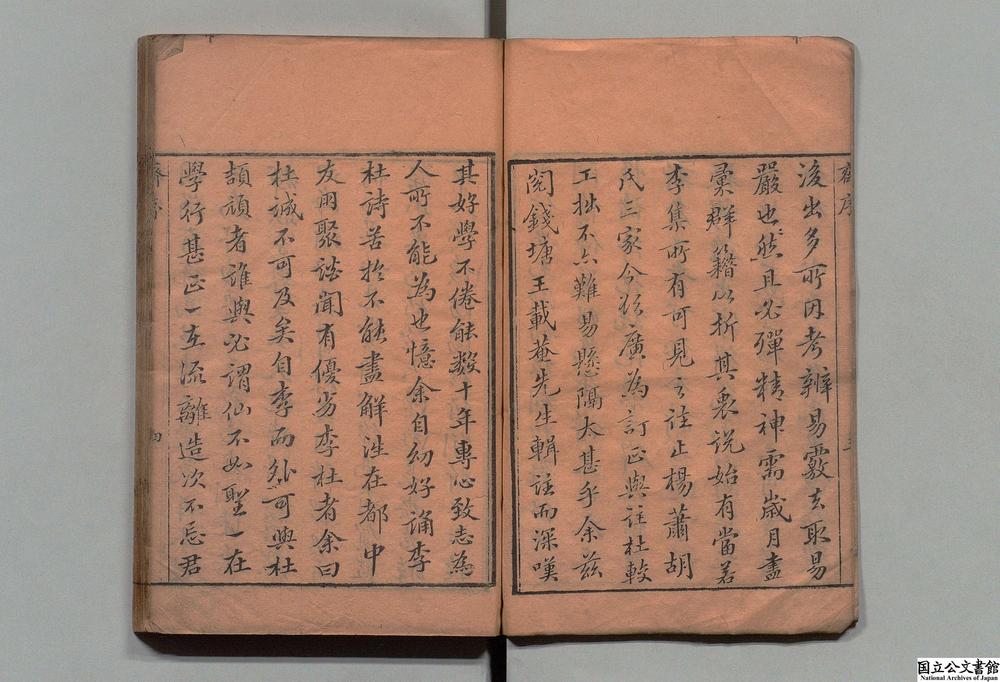 齊序
後出多所因考辨易覈去取易
嚴也然且必殫精神需歲月盡
彙群籍以析其衷說始有當若
李集所有可見之注止楊蕭胡
氏三家今欲廣為訂正與注杜較
工拙不亦難易懸隔太甚乎余茲
閱錢塘王載菴先生輯註而深嘆
三
其好學不倦能數十年專心致志為
人所不能為也憶余自幼好誦李
杜詩苦於不能盡解注在都中
友朋聚談聞有優劣李杜者余曰
杜誠不可及矣自李而外可與杜
頡頏者誰與必謂仙不如聖一在
學行甚正一在流離造次不忘君
四
国立公文書館
National Archives of Japan